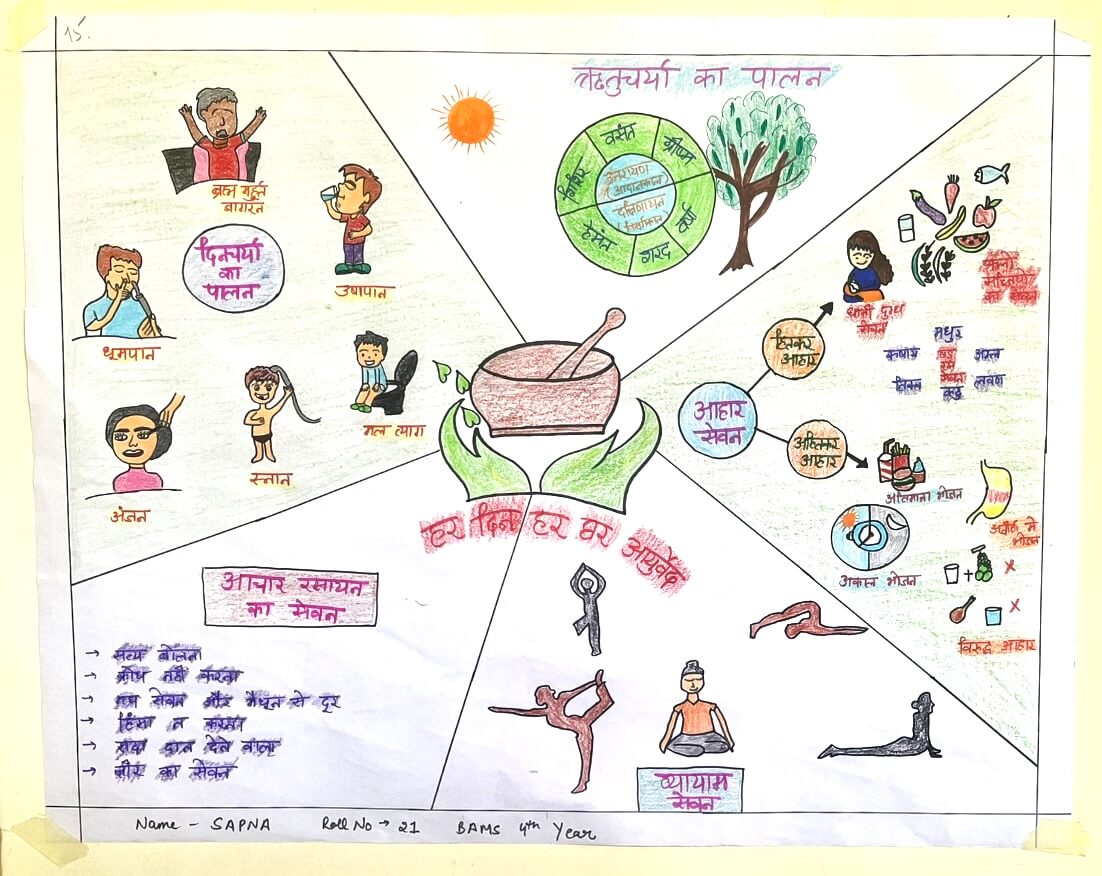 15.
ऋतुचर्या का पालन
वसंत
ग्रीष्म
वर्षा
शरद
हेमंत
शिशिर
उत्तरायण
आदानकाल
दक्षिणायन
विसर्गकाल
ब्रह्म मुहूर्त
जागरन
दिनचर्या
का
पालन
उषापान
धूमपान
मल त्याग
स्नान
अंजन
आहार
सेवन
हितकर
आहार
धात्री दुग्ध
सेवन
का सेवन
मधुर
कषाय
षड्
अम्ल
रस
तिक्त
सेवन
लवण
कटु
अहितकर
आहार
अतिमात्रा भोजन
अजीर्ण मे
भोजन
अकाल भोजन
विरुद्ध आहार
हर दिन हर घर आयुर्वेद
आचार रसायन
का सेवन
→ सत्य बोलना
→ क्रोध नही करना
→ मद्य सेवन और मैथुन से दूर
→ हिंसा न करना
→ सदा दान देने वाला
→ का सेवन
व्यायाम
सेवन
Name - SAPNA Roll No → 21 BAMS 4th Year